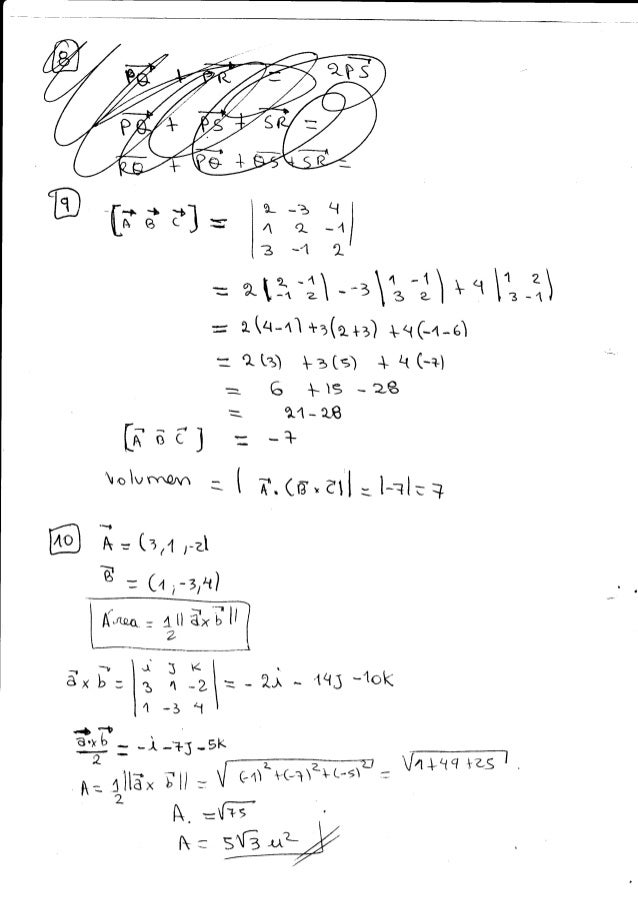 8
PQ + PR = 2PS
PQ + PS + SR =
RQ + PQ + QS + SR =
9
[A B C] = | 2 -3 4 |
| 1 2 -1 |
| 3 -1 2 |
= 2 | 2 -1 | - -3 | 1 -1 | + 4 | 1 2 |
| -1 2 | | 3 2 | | 3 -1 |
= 2(4-1) +3(2+3) +4(-1-6)
= 2(3) +3(5) + 4(-7)
= 6 +15 - 28
= 21-28
[A B C] = -7
Volumen = | A.(B x C)| = |-7| = 7
10
A = (3,1,-2)
B = (1,-3,4)
Área = 1/2 || a x b ||
a x b = | i J K |
| 3 1 -2 | = - 2i - 14J -10K
| 1 -3 4 |
a x b / 2 = -i -7J -5K
A = 1/2 ||a x b|| = √(-1)²+(-7)²+(-5)² = √1+49+25
A. = √75
A = 5√3 u²